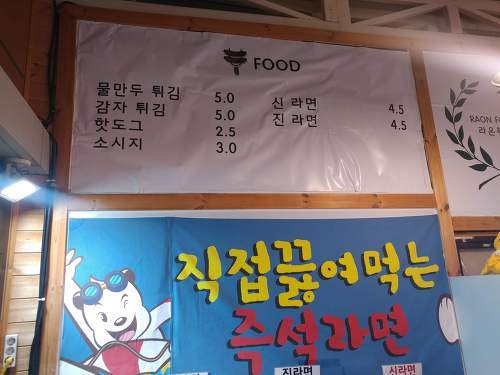 FOOD
물만두 튀김 5.0
감자 튀김 5.0
핫도그 2.5
소시지 3.0
신 라면 4.5
진 라면 4.5
RAON
라온
직접끓여먹는
즉석라면
진라면
신라면